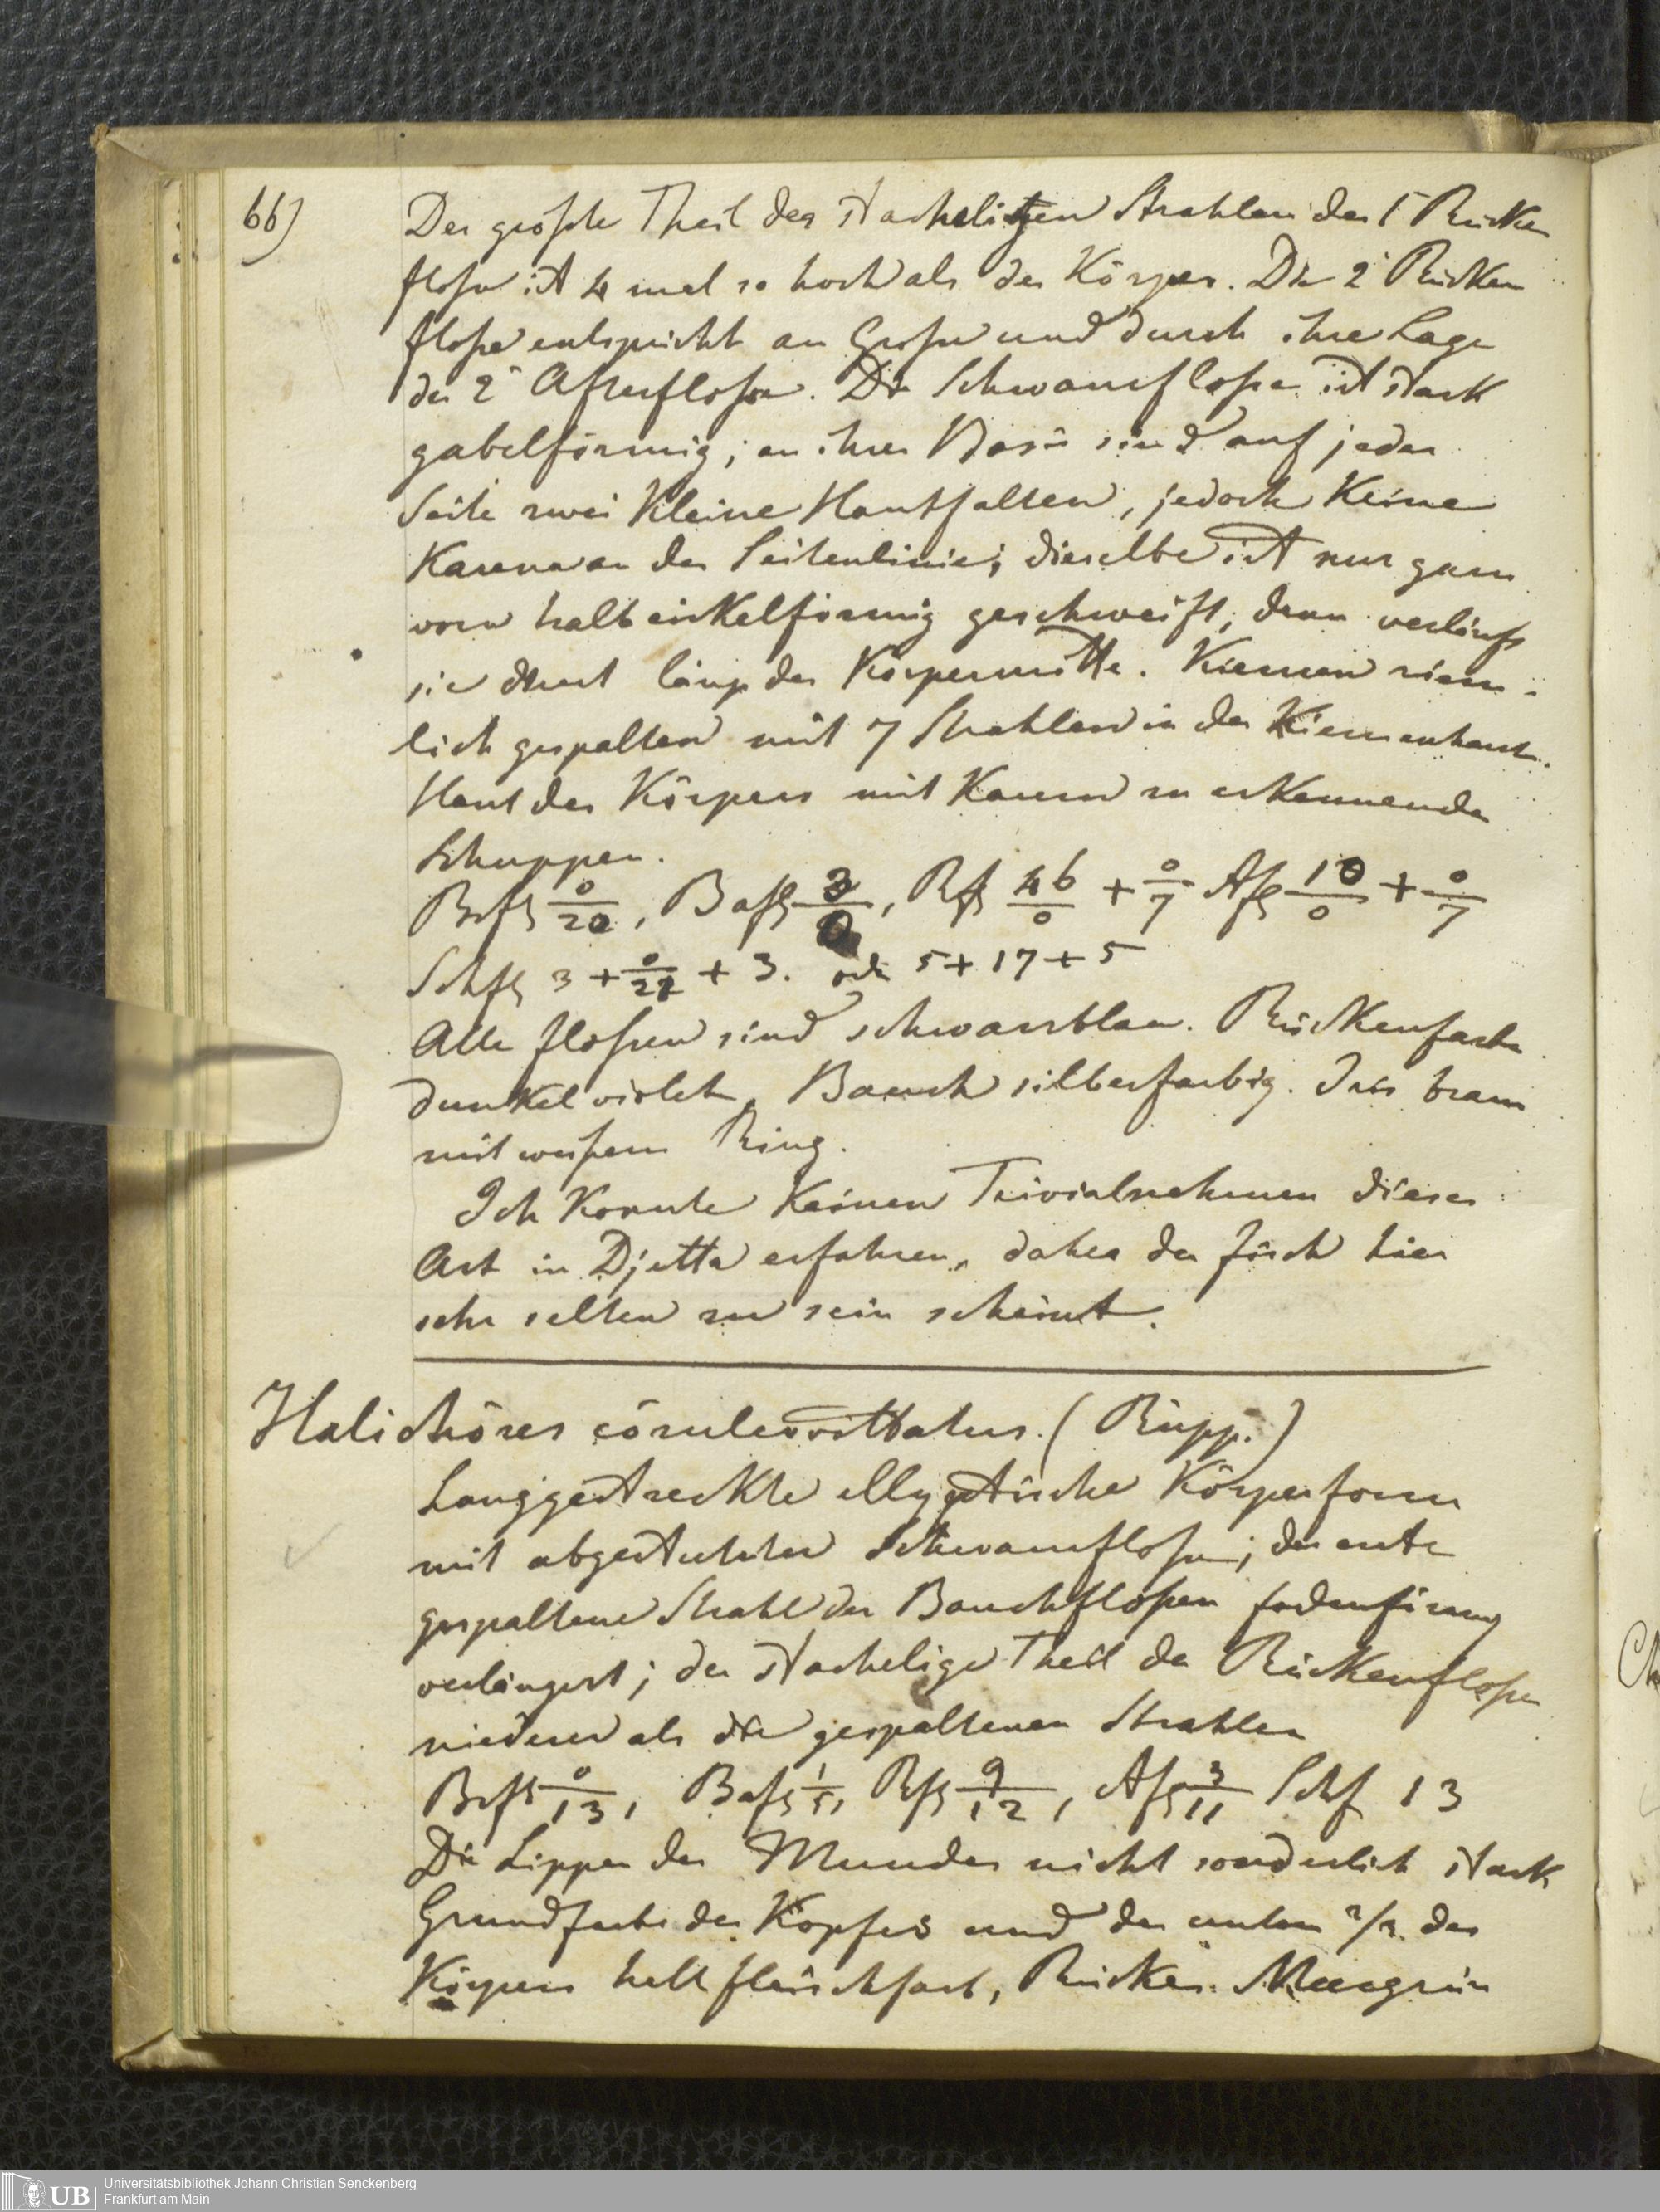 66)
Der größte Theil der stacheligen Strahlen der 1t Rücken
floße ist 4 mal so hoch als der Körper. Die 2t Rücken
floße entspricht an Große und durch ihre Lage
der 2t Afterfloße. Die Schwanzfloße ist stark
gabelförmig; an ihrer Basis sind auf jeder
Seite zwei kleine Hautfalten, jedoch keine
Karena an der Seitenlinie; dieselbe ist nur ganz
vorn halbzirkelförmig geschweift, dann verläuft
sie direct längs der Körpermitte. Kiemen ziem-
lich gespalten mit 7 Strahlen in der Kiemenhaut.
Haut des Körpers mit kaum zu erkennenden
Schuppen.
Brfß 0/20, Bafß 3/0, Rfß 46/0 + 0/7 Afß 10/0 + 0/7
Schfß 3 + 0/22 + 3. od 5 + 17 + 5
Alle floßen sind schwarzblau. Rückenfarbe
dunkel violett, Bauch silberfarbig. Iris braun
mit weißem Ring.
Ich konnte keinen Trivialnahmen dieser
Art in Djetta erfahren, daher der fisch hier
sehr selten zu sein scheint.
Halichöres cöruleovittatus. (Rüpp.)
Langgestreckte elliptische Körperform
mit abgestutzter Schwanzfloße; der erste
gespaltene Strahl der Bauchfloßen fadenförmig
verlängert; der stachelige Theil der Rückenfloße
niederer als die gespaltenen Strahlen
Brfß 0/13, Bafß 1/5, Rfß 9/12, Afß 3/11 Schf 13
Die Lippen des Mundes nicht sonderlich stark
Grundfarbe des Kopfes und der untern 2/3 des
Körpers hell fleischfarb, Rücken Meergrün
Universitätsbibliothek Johann Christian Senckenberg
Frankfurt am Main
UB